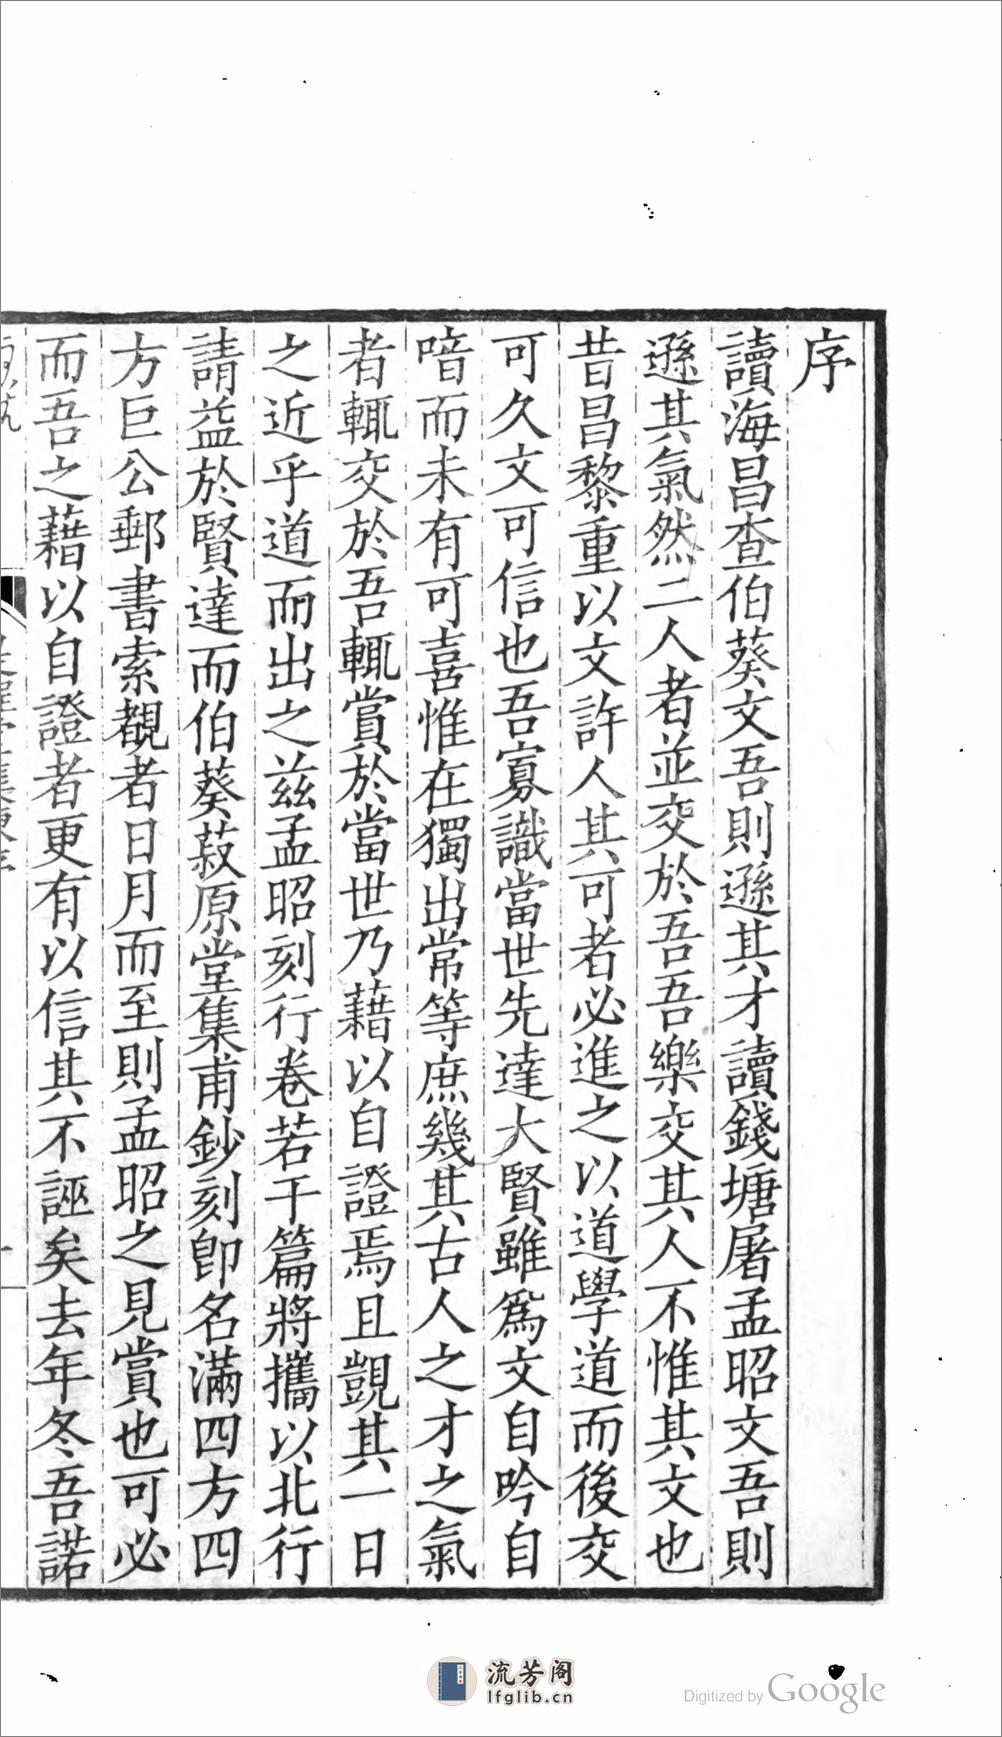 序
讀海昌查伯葵文吾則遜其才讀錢塘屠孟昭文吾則
遜其氣然二人者並交於吾吾樂交其人不惟其文也
昔昌黎重以文許人其可者必進之以道學道而後交
可久文可信也吾寡識當世先達大賢雖爲文自吟自
喑而未有可喜惟在獨出常等庶幾其古人之才之氣
者輒交於吾輒賞於當世乃藉以自證焉且覬其一日
之近乎道而出之茲孟昭刻行卷若干篇將攜以北行
請益於賢達而伯葵菽原堂集甫鈔刻卽名滿四方四
方巨公郵書索觀者日月而至則孟昭之見賞也可必
而吾之藉以自證者更有以信其不誣矣去年冬吾諾
流芳阁
lfglib.cn
Digitized by Google